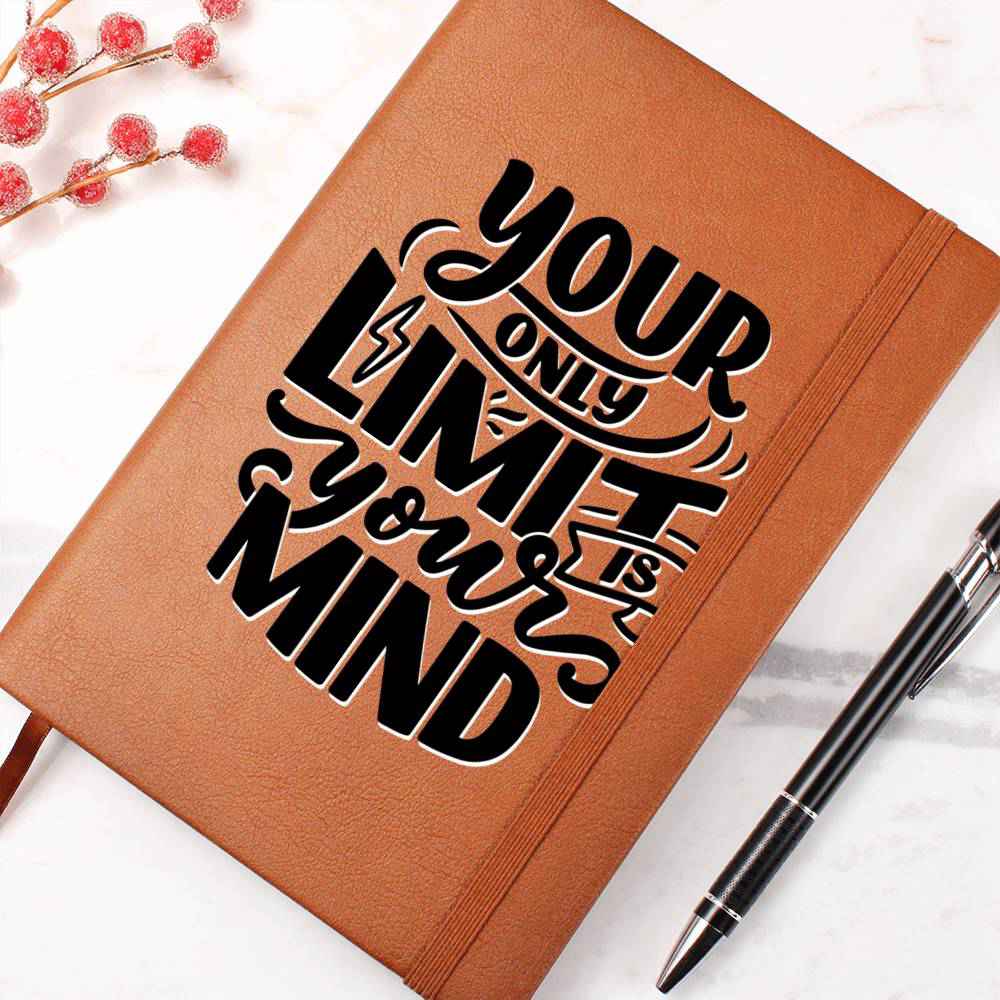 YOUR
ONLY
LIMIT IS
your
MIND